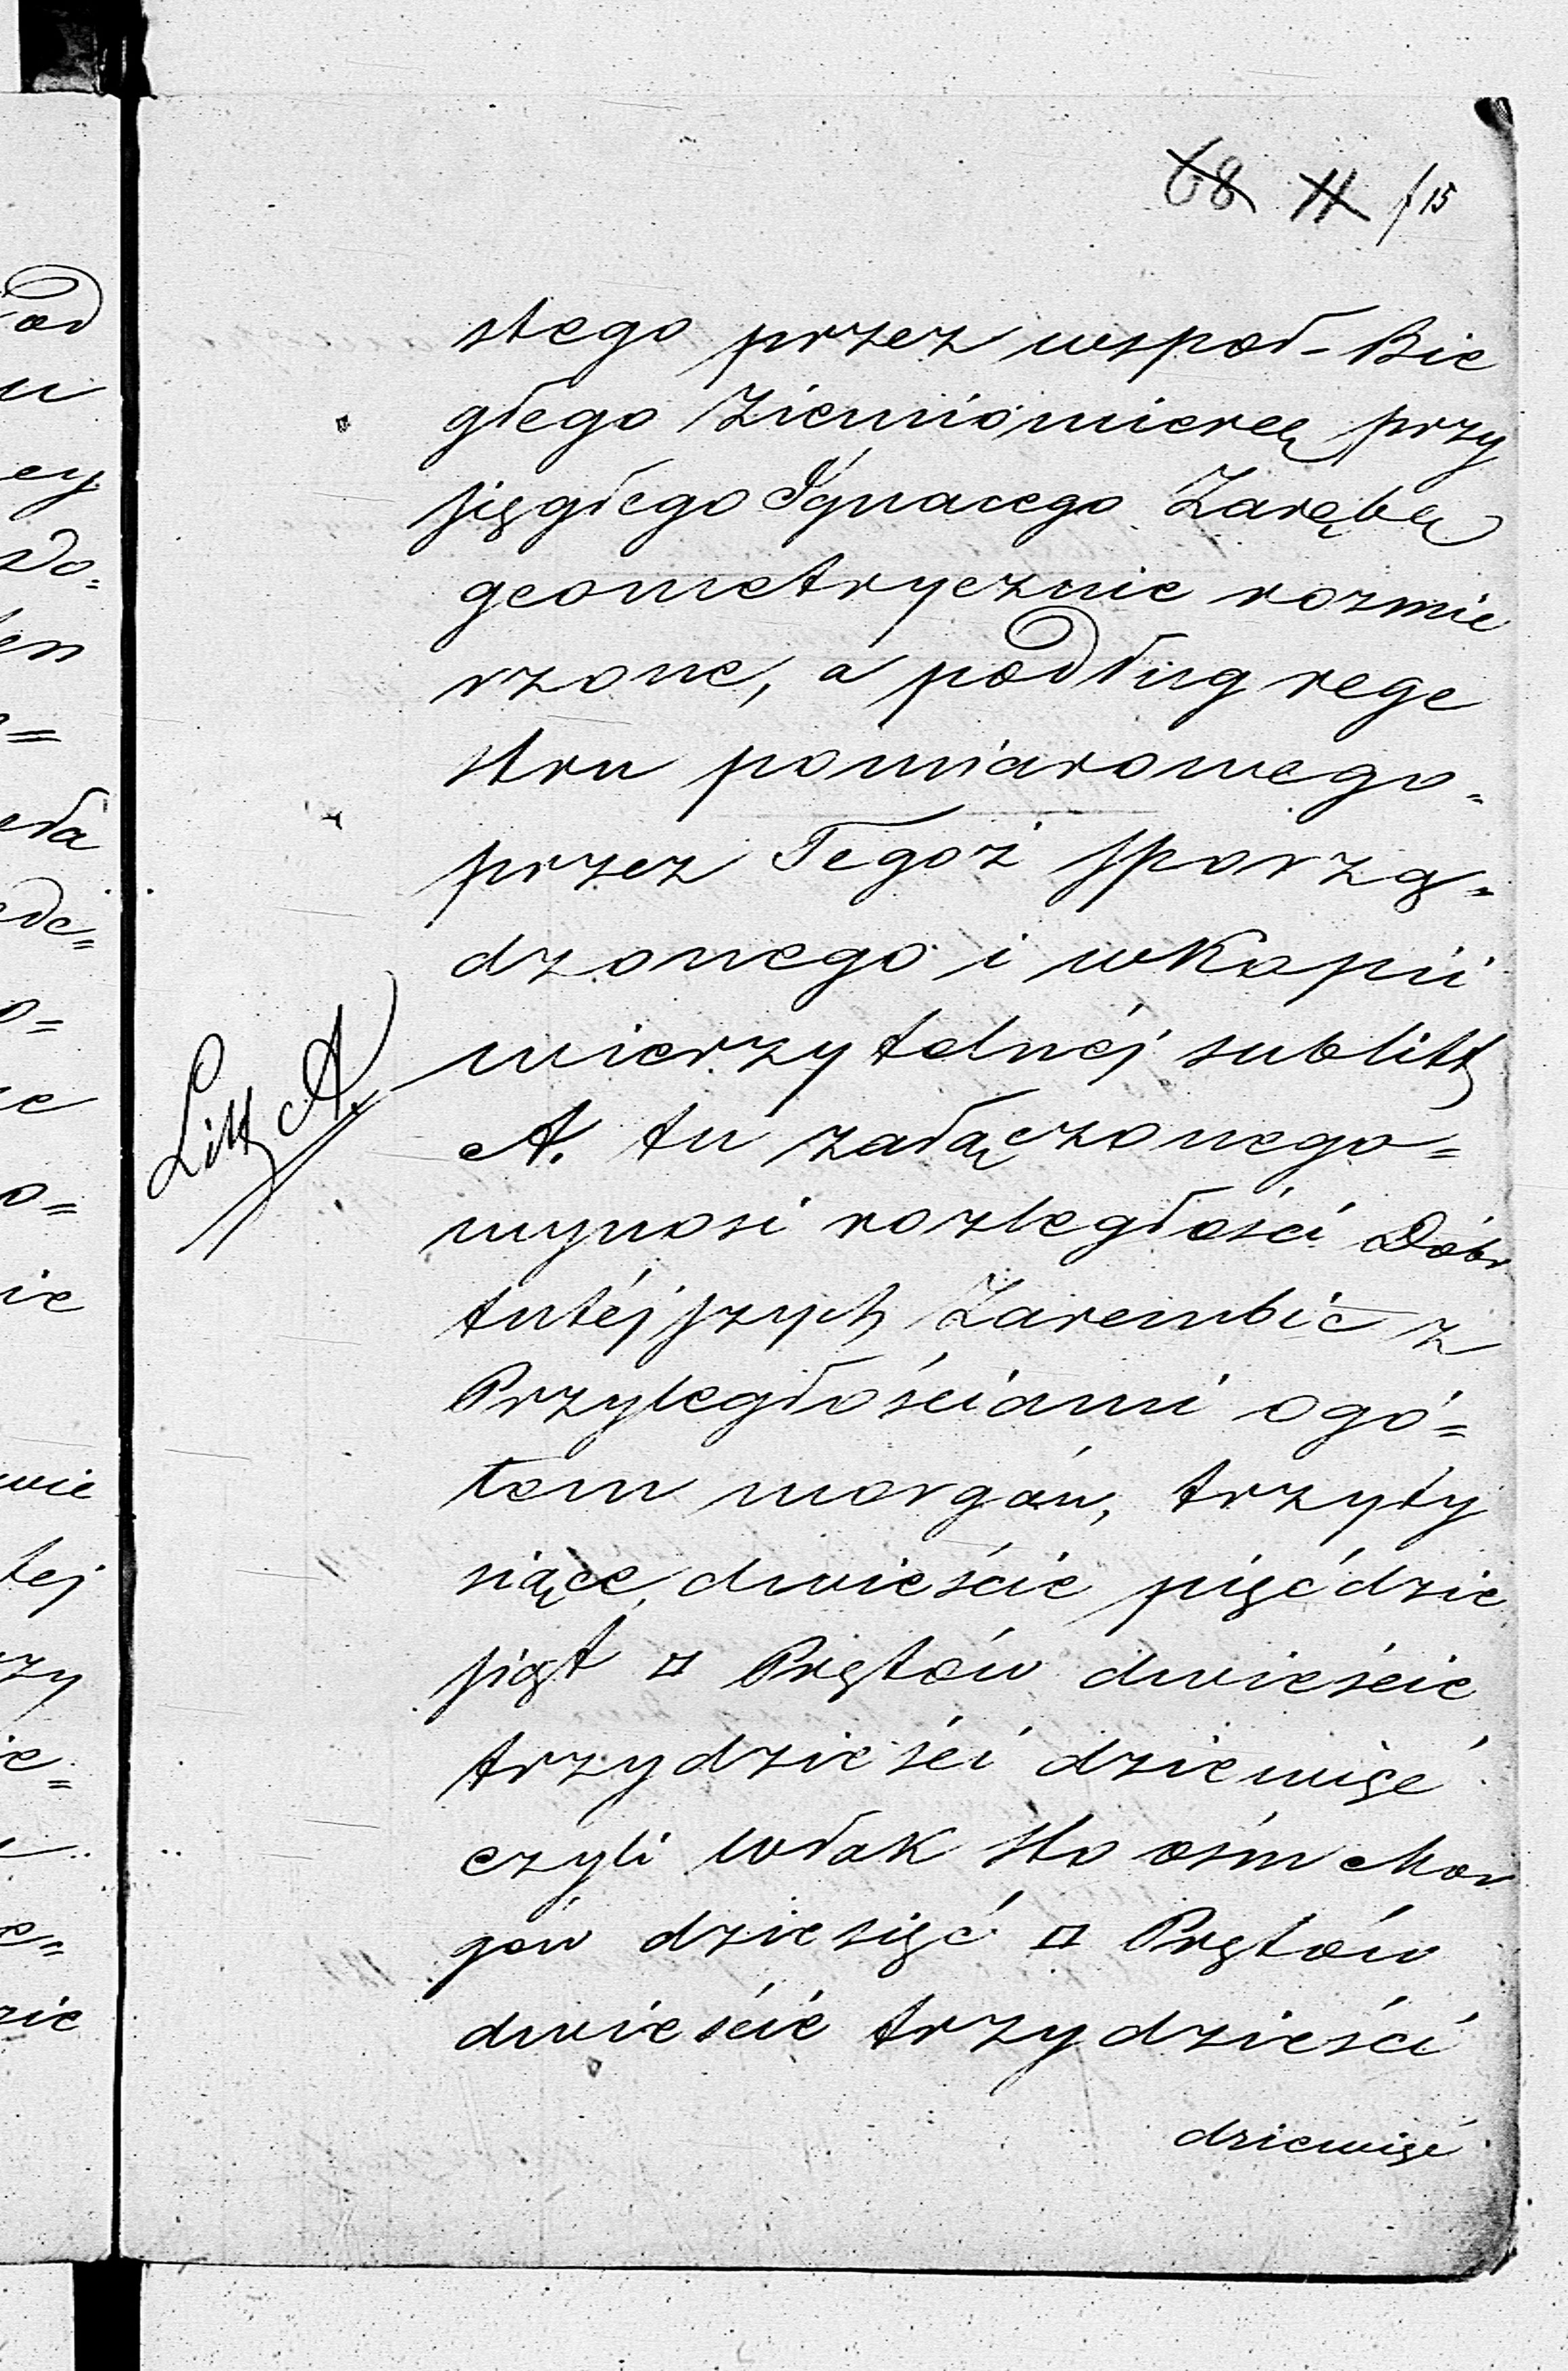 68 11 f 15
stego przez wspoł-Bie
głego Ziemiomiercę przy
sięgłego Ignacego Zarębę
geometrycznie rozmie
rzone, a podług rege
stru pomiarowego=
przez Tegoż sporzą=
dzonego i w Kopii
wierzytelnéj sub litt
Litt A.
A. tu załączonego=
wynosi rozległości Dóbr
tutéjszych Zarembic z
Przyległościami ogó=
łem morgów, trzy ty
siące, dwieście pięćdzie
siąt □ Prętów dwieście
trzydzieści dziewięć
czyli włók sto ośm Mor
gów dziesięć □ Prętów
dwieście trzydzieści
dziewięć